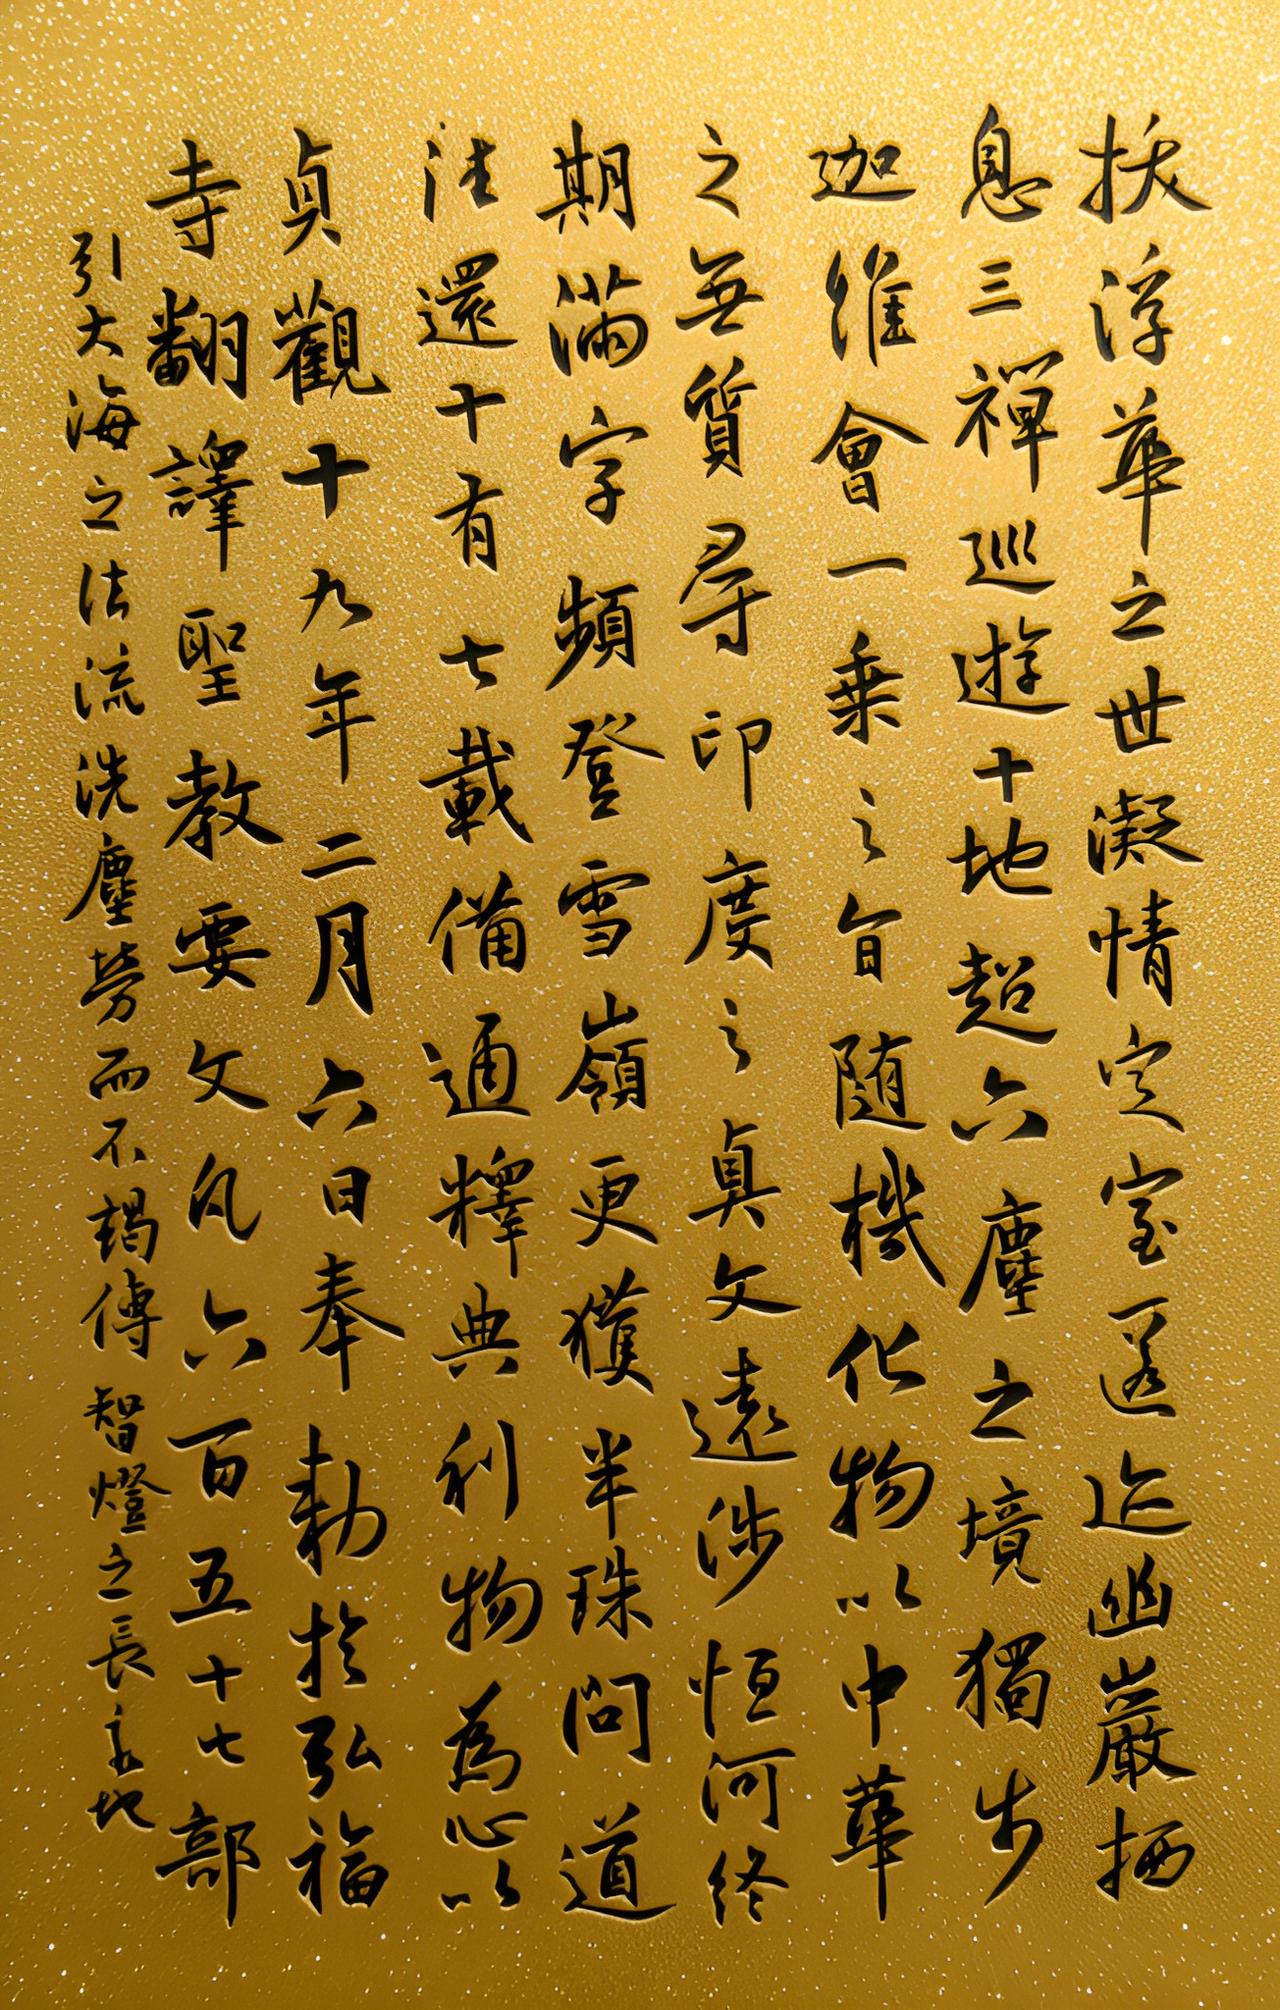 拔浮華之世凝情定室匿迹幽巖栖
息三禪巡遊十地超六塵之境獨步
迦維會一乗之旨随機化物以中華
之無質尋印度之真文遠涉恒河終
期滿字頻登雪嶺更獲半珠問道
法還十有七載備通釋典利物為心以
貞觀十九年二月六日奉勅於弘福
寺翻譯聖教要文凡六百五十七部
引大海之法流洗塵勞而不竭傳智燈之長